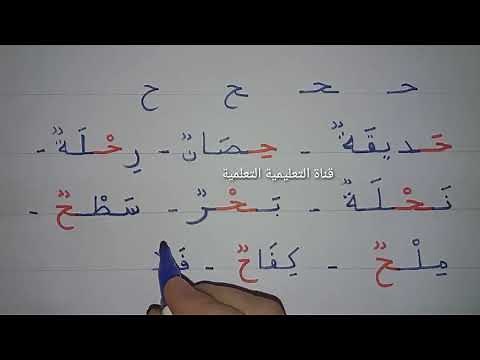 حـ ـحـ ـح ح
حَـديقَـةٌ - حِـصَانٌ - رِحْـلَةٌ -
قناة التعليمية التعلمية
نَـحْـلَةٌ - بَـحْـرٌ - سَطْـحٌ -
مِلْـحٌ - كِفَاحٌ -